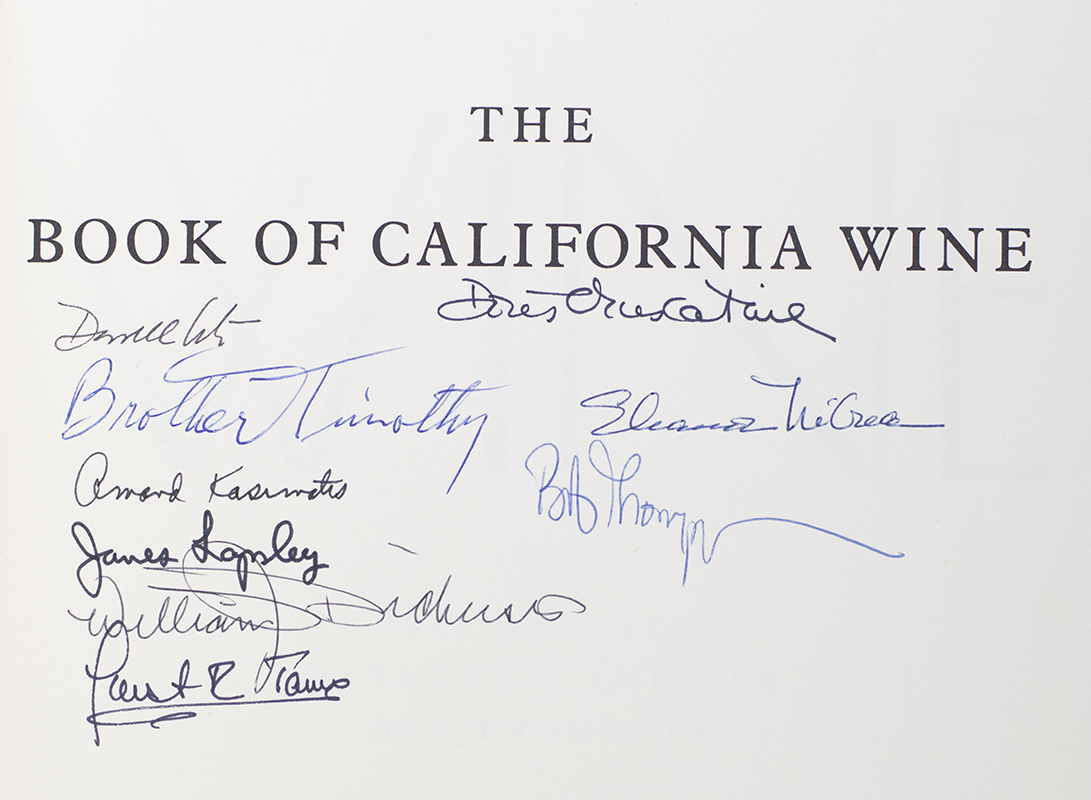 THE
BOOK OF CALIFORNIA WINE
Doris Muscatine
Darrell
Brother Timothy
Eleanor McCrea
Amand Kasimatis
Bob Thompson
James Lapsley
William Dickerson